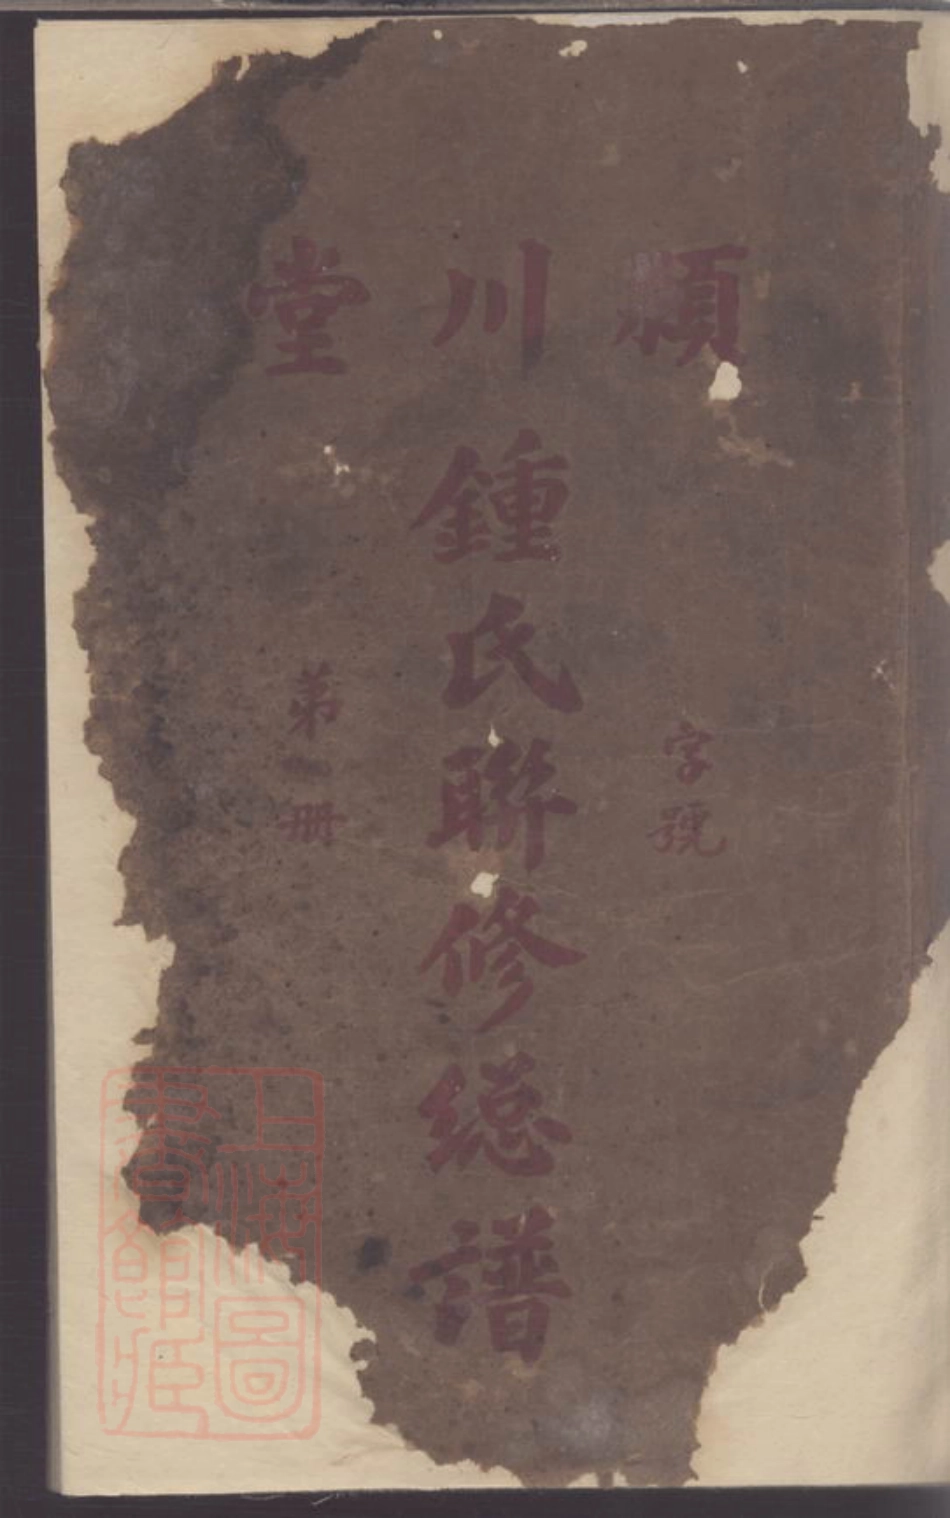 潁川堂
字號
鍾氏聯修總譜
第 冊
上海圖書館藏